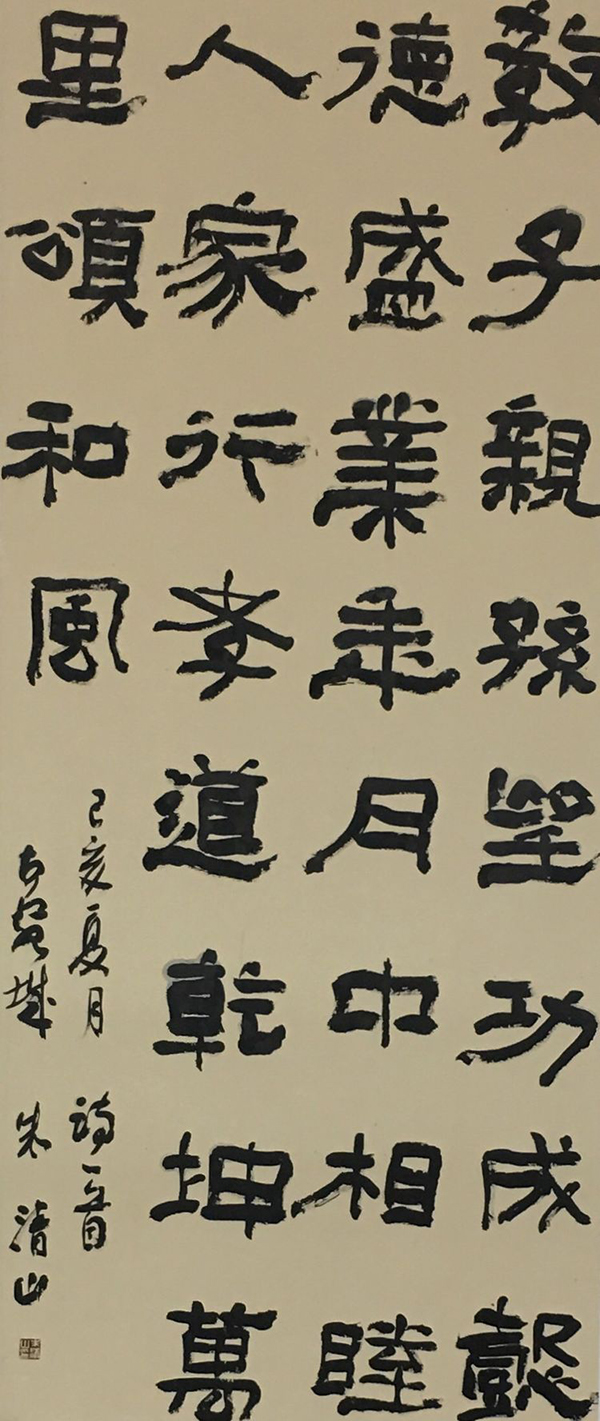 教子親孫望功成懿
德盛業年月中相睦
人家行孝道乾坤萬
里頌和風
己亥夏月 詩一首
城 朱清山